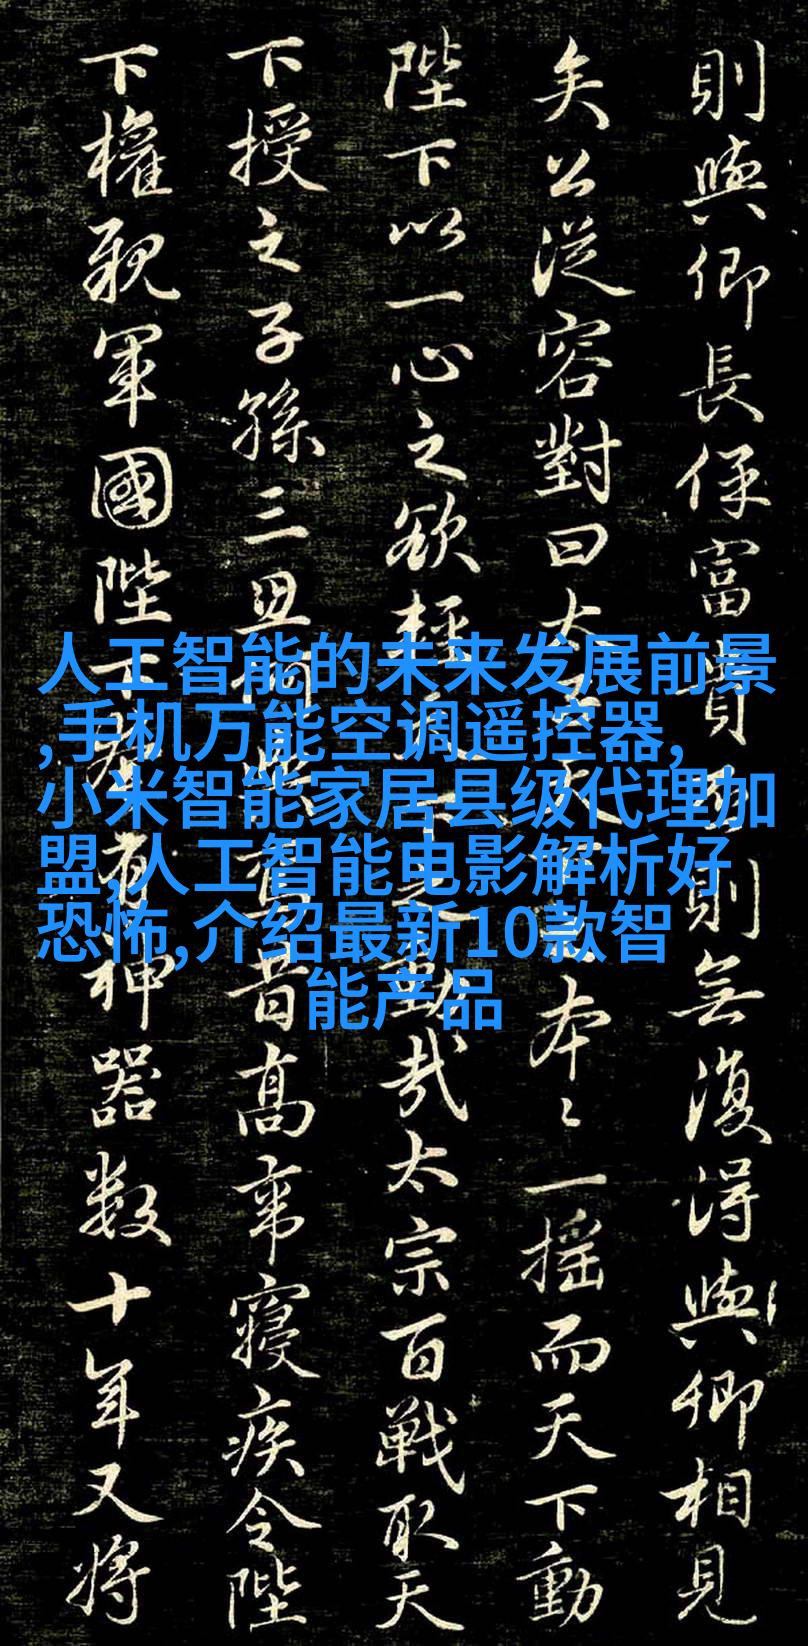 則與卿長保富貴則無復得與卿相見
矣公從容對曰太天本〻一搖而天下動
陛下以一心之欲輕下之動哉太宗百戰取天
下授之子孫三昔高帝寢疾令陛
下權親軍國陛下有神器數十年又將
人工智能的未来发展前景
,手机万能空调遥控器,
小米智能家居县级代理加
盟,人工智能电影解析好
恐怖,介绍最新10款智
能产品